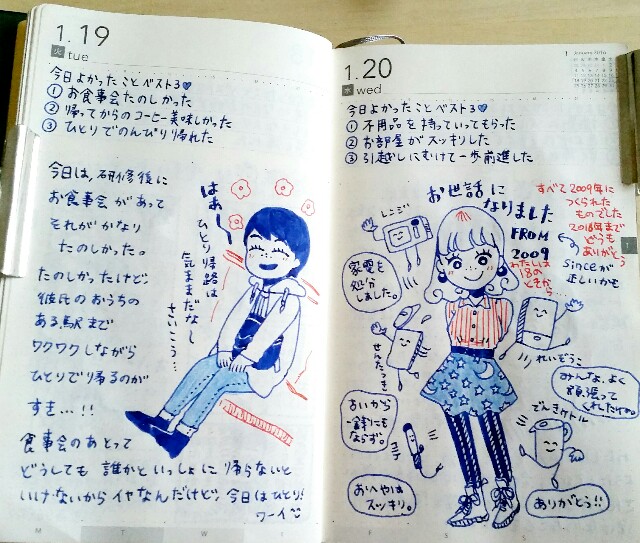 1.19
火
tue
今日よかったことベスト3
① お食事会たのしかった
② 帰ってからのコーヒー美味しかった
③ ひとりでのんびり帰れた
今日は、研修後に
お食事会があって
それがかなり
たのしかった。
たのしかったけど、
彼氏のおうちの
ある駅まで
ワクワクしながら
ひとりで帰るのが
すき…!!
食事会のあとって
どうしても誰かといっしょに帰らないと
いけないからイヤなんだけど、今日はひとり!
ワーイ
はぁー
ひとり帰路は
気ままだなし
さいこう…
M T W
1 January 2016
1.20
水
wed
今日よかったことベスト3
① 不用品を持っていってもらった
② お部屋がスッキリした
③ 引越しにむけて一歩前進した
お世話に
なりました
FROM
2009
わたしは
18の
ときから…
すべて2009年に
つくられた
ものでした
2016年まで
どうも
ありがとう
sinceが
正しいかも
レンジ
家電を
処分
しました。
せんたっき
れいぞうこ
みんな、よく
頑張って
くれたけの
でんきケトル
おいから
一銭にも
ならず。
おへやは
スッキリ。
ありがとう!!
1
F S S